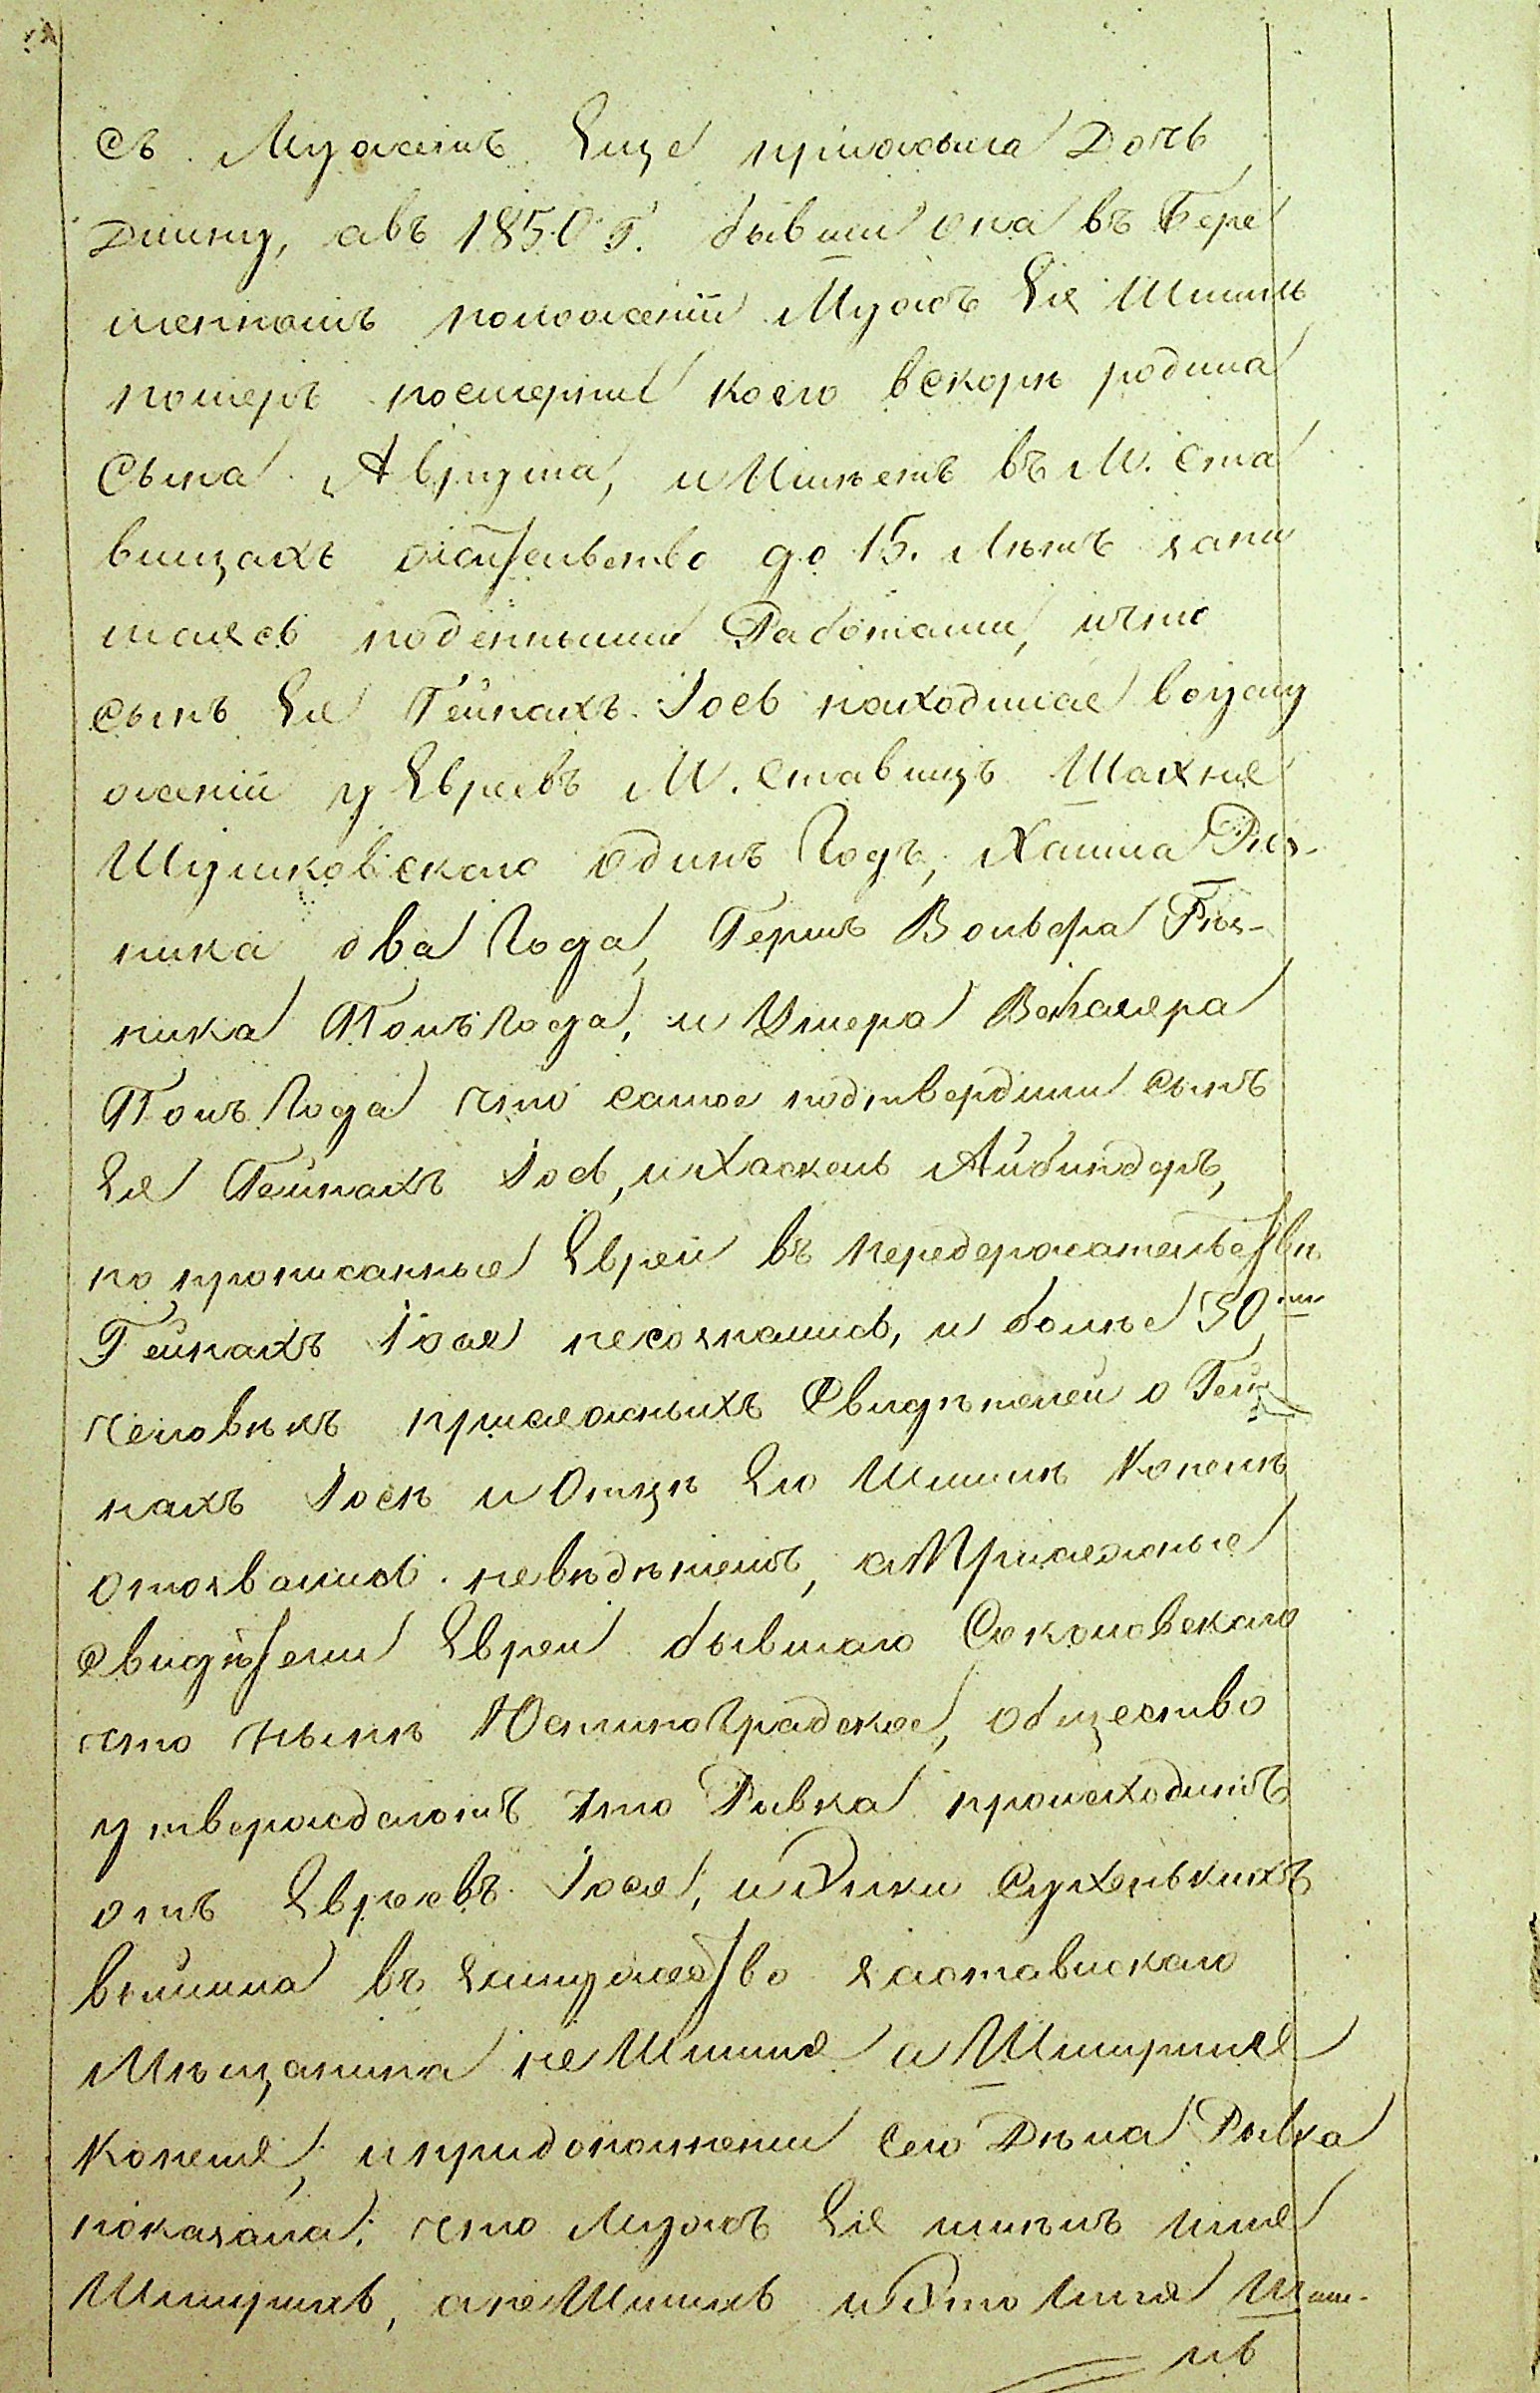 съ Мужемъ Еще прижила Дочь
Диину, авъ 1850 г. бывши она въ Бере
менномъ положеніи Мужъ Ея Шмиль
померъ посмерти коего вскорѣ родила
Сына Аврума, и Имѣетъ въ М. Ста
вищахъ жительство до 15. Лѣтъ зани
маясь поденными Работами, ичто
сынъ Ея Гейнахъ Іось находился воуслу
женіи у Евреевъ М. Ставищъ Шахне
Шуликовскаго одинъ Годъ, Хаима Рѣз-
ника два Года, Герша Вольфа Рѣз-
ника Полъ Года, и Умера
Полъ Года что самое подтвердили сынъ
Ея Гейнахъ Іось, и Хаскель Айбиндеръ,
но прописанные Евреи въ передержательствѣ
Гейнахъ Іося несознались, и болѣе 30ти
человѣкъ присяжныхъ Свидѣтелей о Гей
нахъ Іосѣ и Отцѣ Его Шмилѣ Копелѣ
отозвались невѣдѣніемъ, а Присяжные
свидѣтели Евреи бывшаго Соколовскаго
что нынѣ Юстиноградское, общество
утверждаютъ что Рывка происходитъ
отъ Евреевъ Іося, и Эльки Сухенькихъ
вышла въ замужество заставискаго
Мѣщанина не Шмиля а Шмирила
Копеля, и придополненіи сего Дѣла Рывка
показала: что Мужъ Ея имѣлъ имя
Шмириль, а не Шмиль и Это Имя Шми-
ль